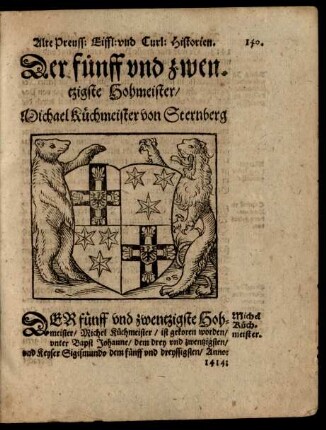 Alte Preuss: Eiffl: vnd Curl: Historien. 140.
Der fünff vnd zwen-
tzigste Hohmeister/
Michael Küchmeister von Sternberg
DER fünff vnd zwentzigste Hoh-
meister/ Michel Küchmeister/ ist gekoren worden/
vnter Bapst Johanne/ dem drey vnd zwentzigsten/
vnd Keyser Sigismundo dem fünff vnd dreyssigsten/ Anno:
1414:
Michel
Küch-
meister.